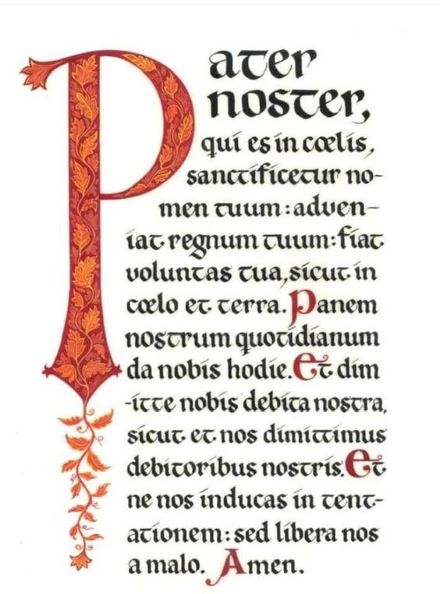 Pater
noster,
qui es in cœlis,
sanctificetur no-
men tuum: adven-
iat regnum tuum: fiat
voluntas tua, sicut in
cœlo et terra. Panem
nostrum quotidianum
da nobis hodie. Et dim
-itte nobis debita nostra,
sicut et nos dimittimus
debitoribus nostris. Et
ne nos inducas in tent-
ationem: sed libera nos
a malo. Amen.